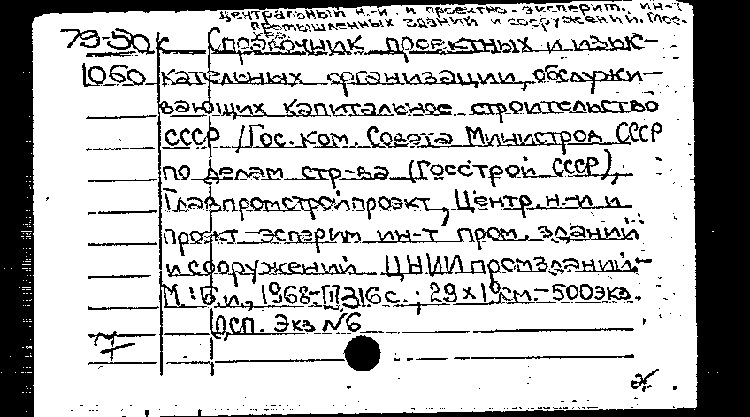 Центральный н.-и. и проектно-эксперим. ин-т
промышленных зданий и сооружений. Мос-
ква
79-50к Справочник проектных и изыс-
1060 кательных организации, обслужи-
вающих капитальное строительство
СССР /Гос. ком. Совета Министров СССР
по делам стр-ва (Госстрой СССР),
Главпромстройпроэкт, Центр. н-и и
проэкт-эсперим ин-т пром. зданий
и сооружений ЦНИИпромзданий.-
М.: Б.и., 1968-[I]316 с.; 29 x 19см.- 500экз.
ДСП. Экз N6
7